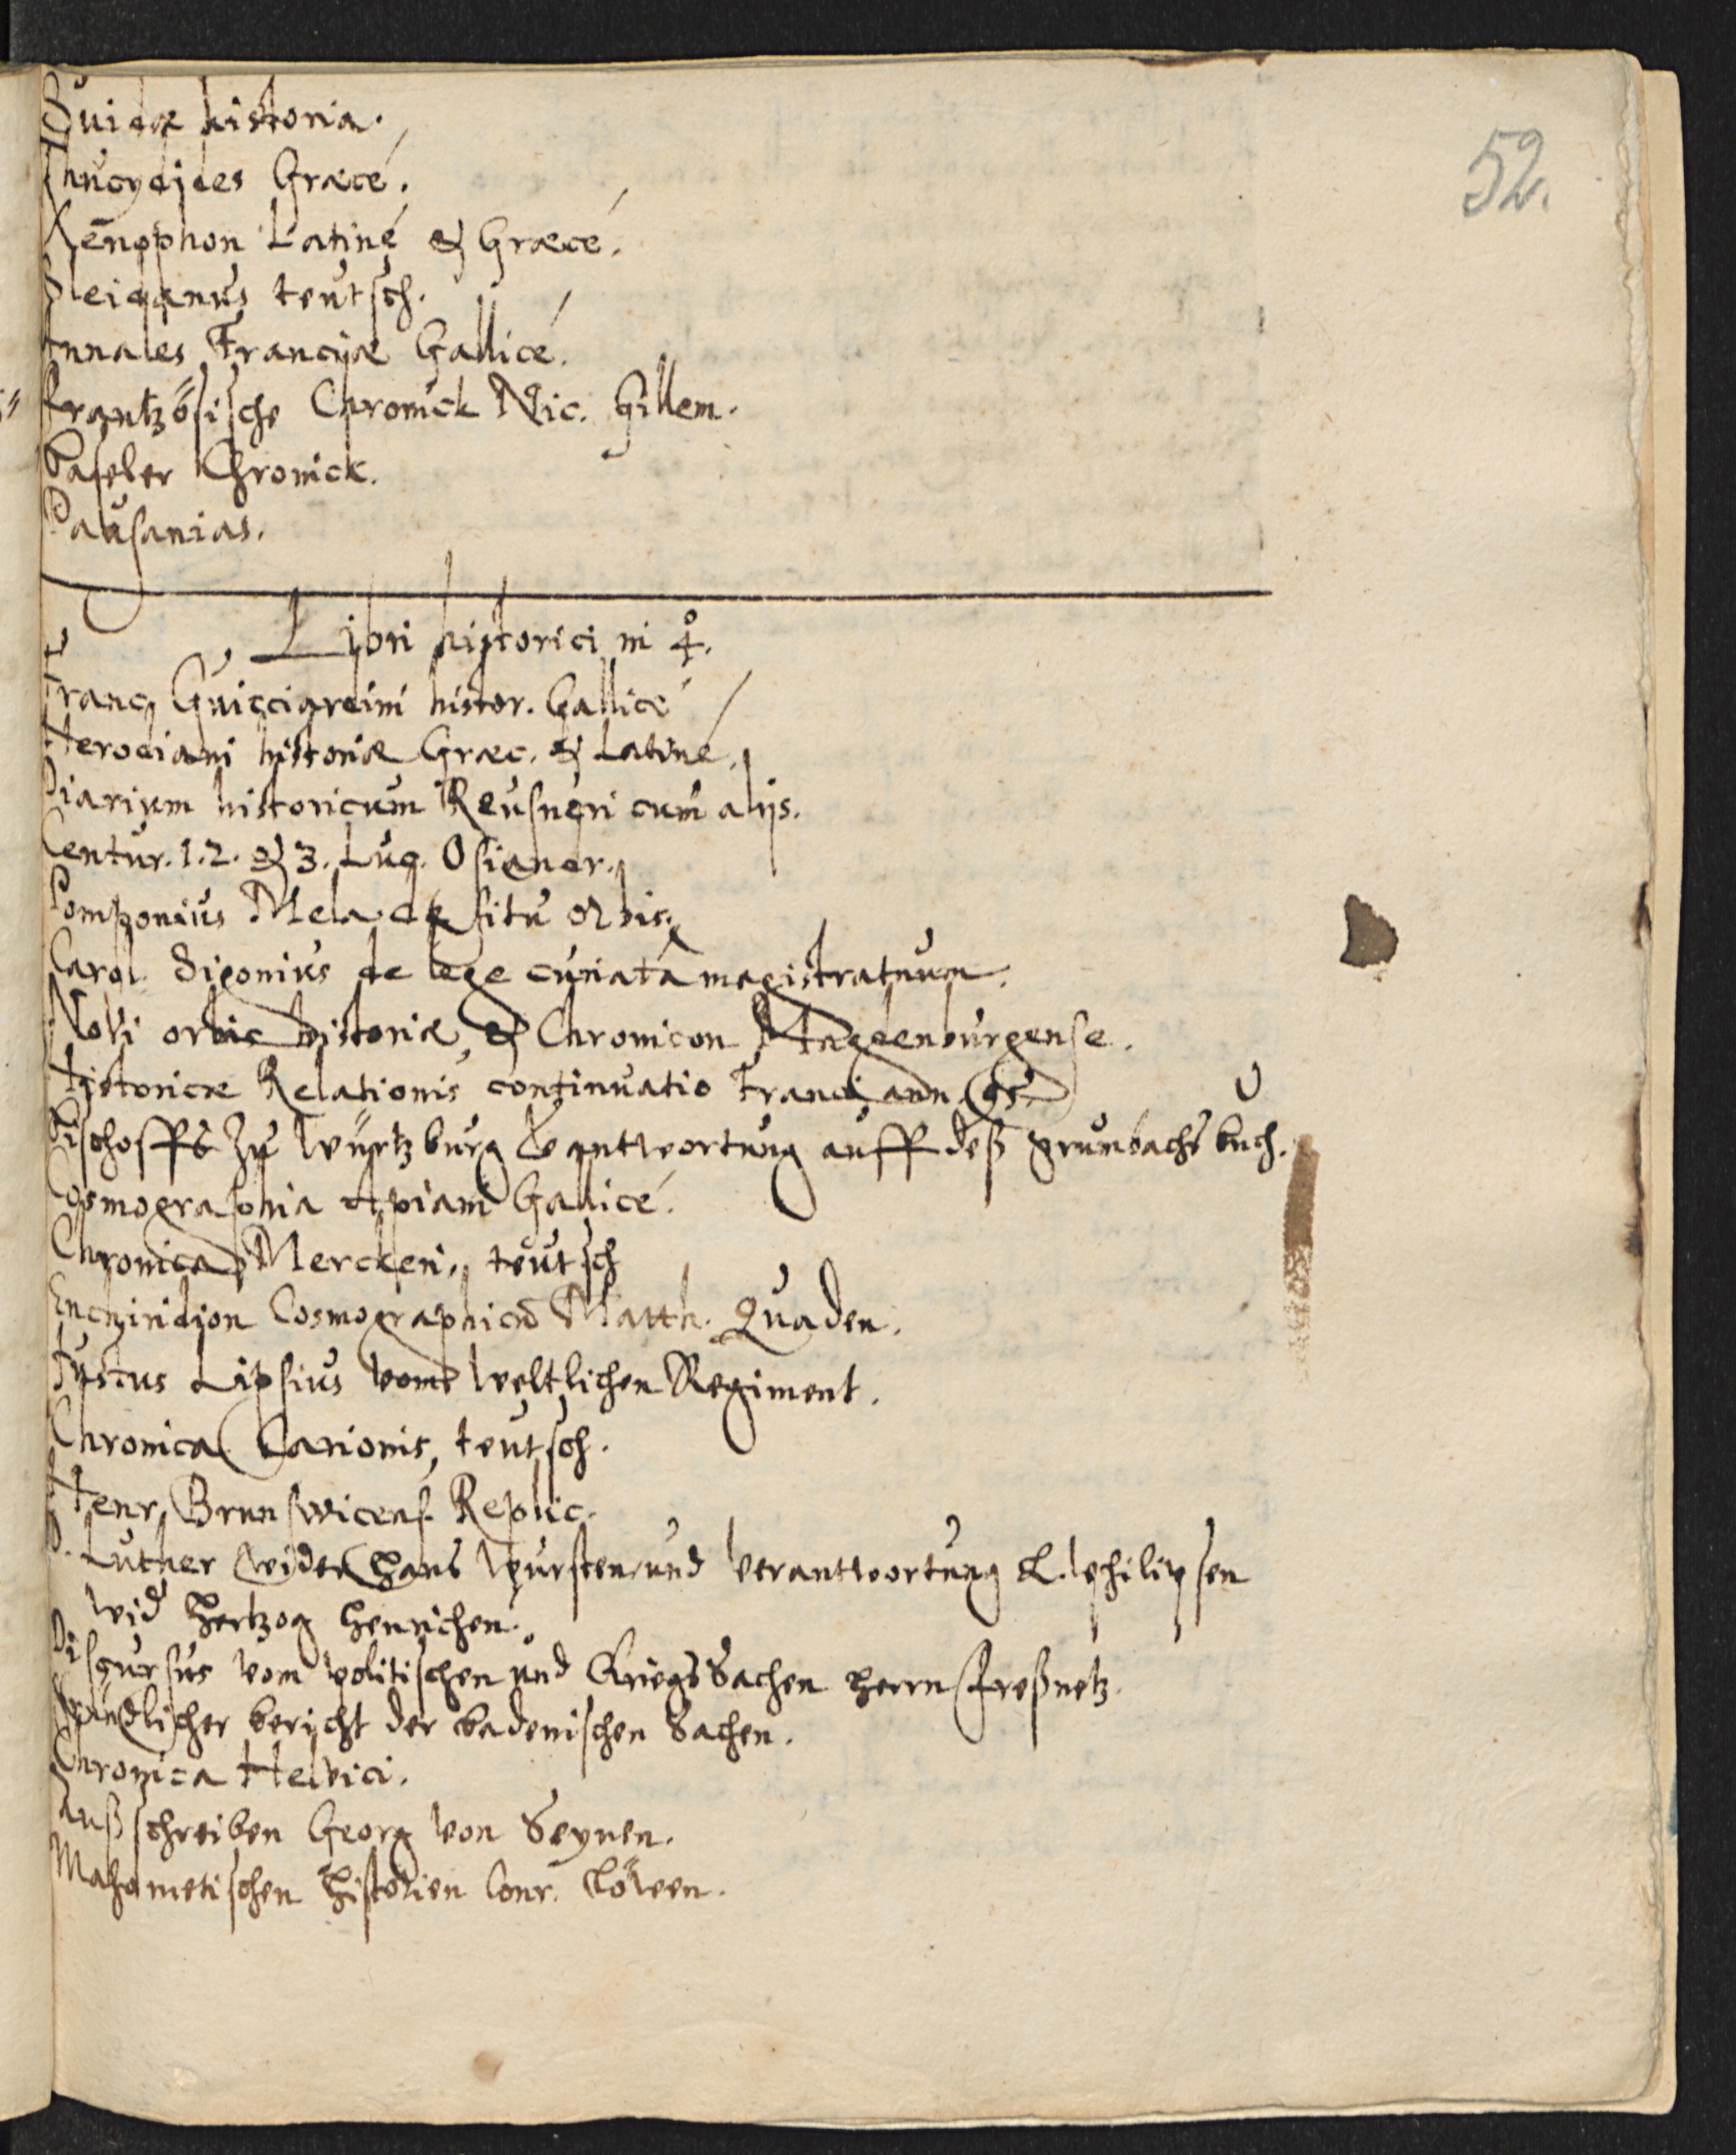 52.
Suidæ historia.
Thucydides Græcé.
Xenophon Latiné & Græcé.
Sleidanus teutsch.
Annales Franciæ Gallicé.
Frantzösische Chronick Nic. Gillem.
Baseler Chronick.
Pausanias.
Libri historici in 4º.
Franc. Guicciardini histor. Gallicé
Herodiani historiæ Græc. & Latiné.
Diarium historicum Reusneri cum alijs.
Centur. 1. 2. & 3. Luc. Osiander.
Pomponius Mela de situ orbis.
Carol. Sigonius de lege curiatâ magistratuum.
Novi orbis historiæ, & Chronicon Magdenburgense.
Historicæ Relationis continuatio Franc. ann. 95.
Bischoffs zu Würtzburg Verantwortung auff deß Grumbachs buch.
Cosmographia Apiani Gallicé.
Chronica Merckeri, teutsch
Enchiridion Cosmographicũ Matth. Quaden.
Justus Lipsius vom Weltlichen Regiment.
Chronica Carionis, teutsch.
Henr. Brunswicens. Replic.
D. Luther wider Hans Wursten und Verantwortung L. Philipsen
wid Hertzog Henrichen.
Discursus vom politischen und Kriegs Sachen Herrn Freßnetz.
Gründlicher bericht der badenischen Sachen.
Chronica Helvici.
Außschreiben Georg von Seynen.
Mahometischen Historien Conr. Löwen.